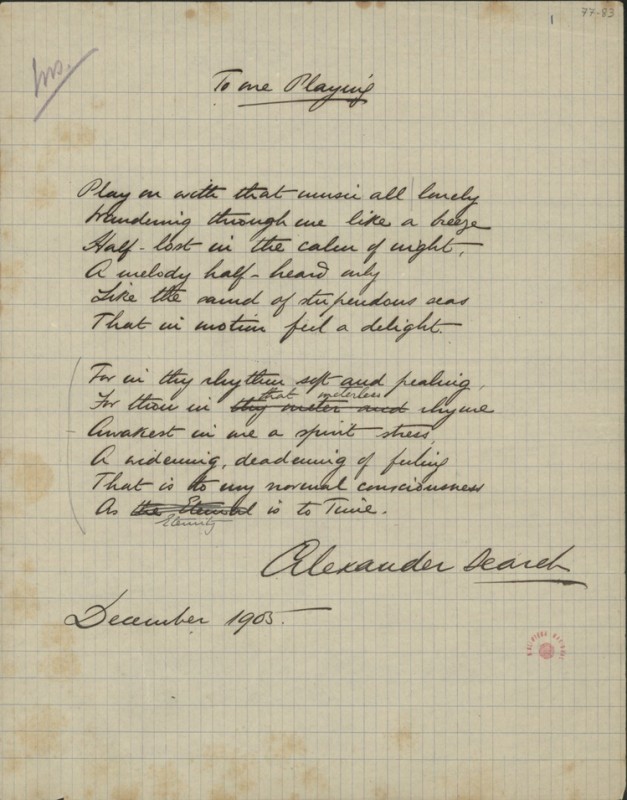 77-83
1
To one Playing
Play on with that music all lonely
Wandering through me like a breeze
Half-lost in the calm of night,
A melody half-heard only
Like the sound of stupendous seas
That in motion feel a delight.
For in thy rhythm soft and pealing,
that meterless
For thou in thy meter and rhyme
Awakest in me a spirit stress,
A widening, deadening of feeling
That is to my normal consciousness
As the Eternal is to Time.
Eternity
Alexander Search
December 1905.